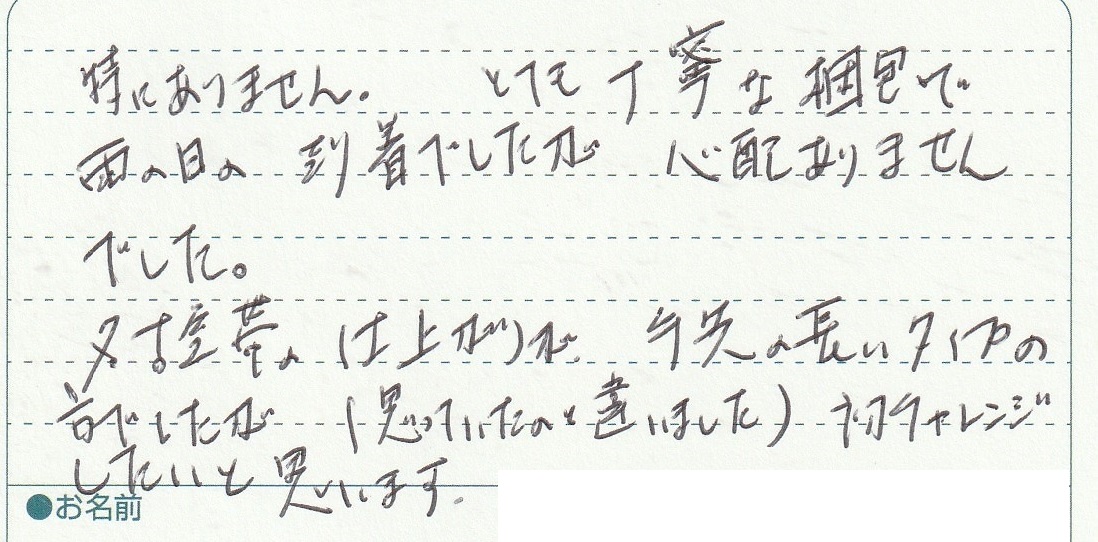 特にありません。 とても丁寧な梱包で
雨の日の到着でしたが 心配ありません
でした。
名古屋帯の仕上がりが 手先の長いタイプの
でしたが (思っていたのと違いました) 初チャレンジ
したいと思います.
●お名前